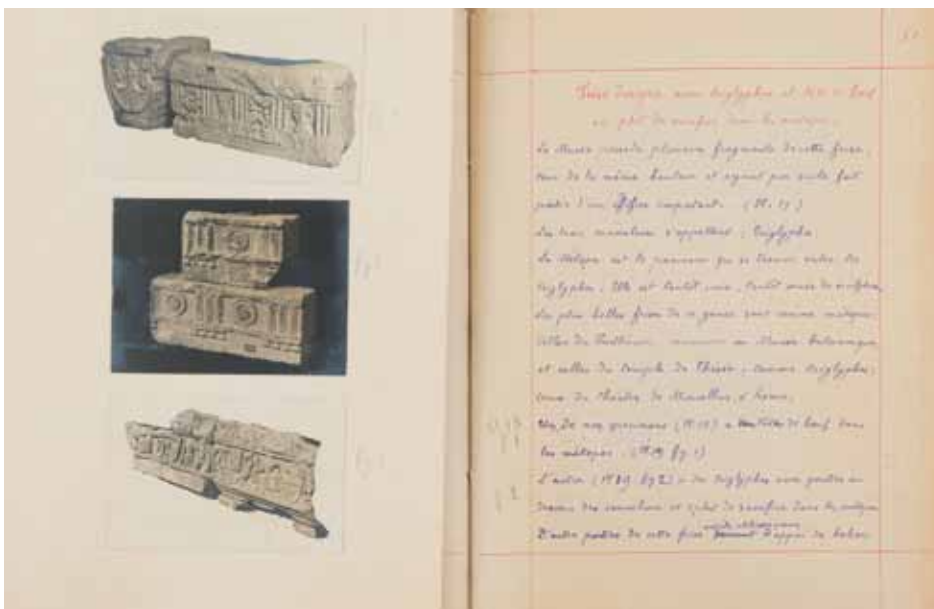 Frise Dorique avec triglyphes et tête de bœuf
ou plat de sacrifice dans les métopes.
Le Musée possède plusieurs fragments de cette frise,
tous de la même hauteur et ayant par suite fait
partie d'un édifice important. (Pl. 19)
Les trois cannelures s'appellent : triglyphe.
La Métope est le panneau qui se trouve entre les
triglyphes ; Elle est tantôt unie, tantôt ornée de sculptures
Les plus belles frises de ce genre sont comme métopes
celles du Parthénon au Musée britannique
et celles du temple de Thésée ; comme triglyphes,
ceux du théâtre de Marcellus, à Rome.
De nos spécimens a tête de bœuf dans
les métopes. (Pl. 19 fig. 1)
L'autre (Pl. 19 fig 2) a des triglyphes avec gouttes au
dessous des cannelures et plat de sacrifice dans les métopes
D'autres parties de cette frise d'appui de
fig 2